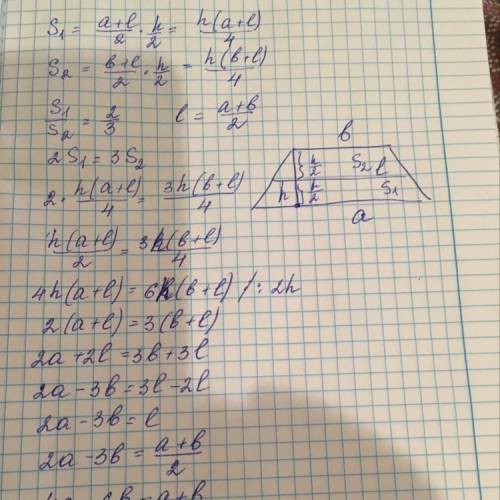 S₁ = (a+l)/2 · h/2 = h(a+l)/4
S₂ = (b+l)/2 · h/2 = h(b+l)/4
S₁/S₂ = 2/3   l = (a+b)/2
2S₁ = 3S₂
2 · h(a+l)/4 = 3h(b+l)/4
h(a+l)/2 = 3h(b+l)/4
4h(a+l) = 6h(b+l) /: 2h
2(a+l) = 3(b+l)
2a + 2l = 3b + 3l
2a - 3b = 3l - 2l
2a - 3b = l
2a - 3b = (a+b)/2
b
h/2 S₂ l
h h/2 S₁
a